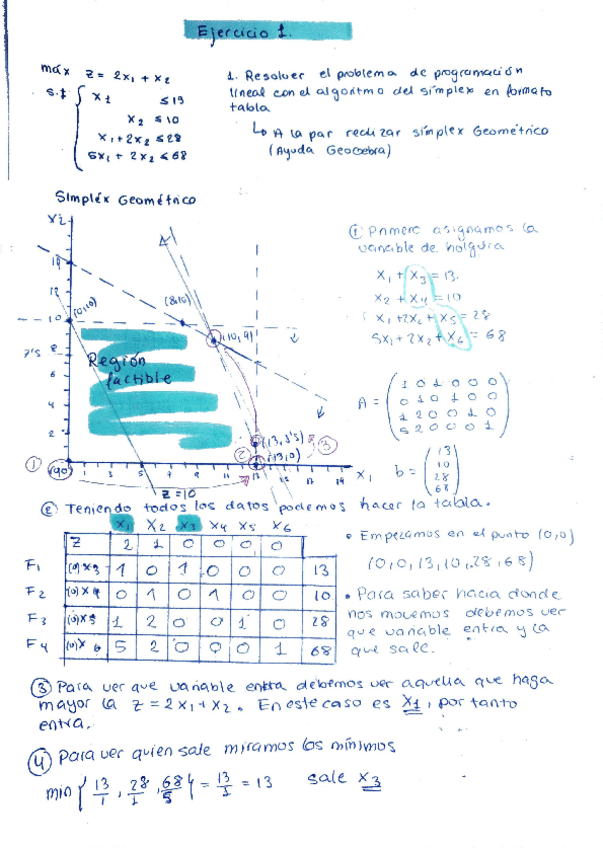 Ejercicio 1.
máx Z = 2x1 + x2
s.t { x1 ≤ 13
x2 ≤ 10
x1 + 2x2 ≤ 28
5x1 + 2x2 ≤ 68
1. Resolver el problema de programación
lineal con el algoritmo del simplex en formato
tabla
↳ A la par realizar símplex Geométrico
(Ayuda Geogebra)
Simpléx Geométrico
X2
14
12
10
7'5
8
6
4
2
(0,10)
(8,10)
(10,9)
Región
factible
(13,1'5)
(13,0)
①
②
③
(0,0)
1 3 5 7 9 11 13 15 17 19
X1
Z=10
① Primero asignamos la
variable de holgura
x1 + x3 = 13.
x2 + x4 = 10
x1 + 2x2 + x5 = 28
5x1 + 2x2 + x6 = 68
A = ( 1 0 1 0 0 0
0 1 0 1 0 0
1 2 0 0 1 0
5 2 0 0 0 1 )
b = ( 13
10
28
68 )
② Teniendo todos los datos podemos hacer la tabla.
X1 X2 X3 X4 X5 X6
Z 2 1 0 0 0 0
F1 (0) x3 1 0 1 0 0 0 13
F2 (0) x4 0 1 0 1 0 0 10
F3 (0) x5 1 2 0 0 1 0 28
F4 (0) x6 5 2 0 0 0 1 68
• Empezamos en el punto (0,0)
(0,0,13,10,28,68)
• Para saber hacia donde
nos movemos debemos ver
que variable entra y la
que sale.
③ Para ver que variable entra debemos ver aquella que haga
mayor la z = 2x1 + x2. En este caso es x1, por tanto
entra.
④ Para ver quien sale miramos los mínimos
min { 13/1, 28/1, 68/5 } = 13/1 = 13 sale x3